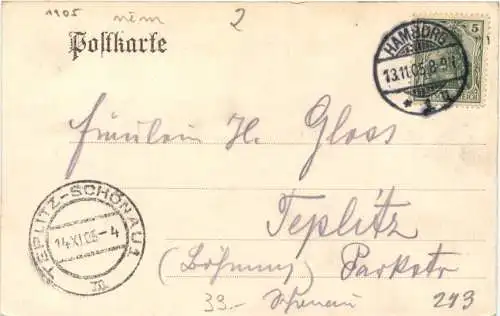 1905 něm 2
Postkarte
5
HAMBURG
13.11.05.8-9V
* 1 u
Fräulein H. Gloss
Teplitz
TEPLITZ-SCHÖNAU 1
14 XI 05-4
(Böhmen) Parkstr
33.- Schönau 243